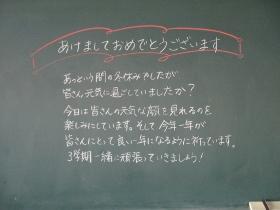 あけましておめでとうございます
あっという間の冬休みでしたが
皆さん元気に過ごしていましたか？
今日は皆さんの元気な顔を見れるのを
楽しみにしています。そして今年一年が
皆さんにとって良い一年になるように祈っています。
3学期一緒に頑張っていきましょう！